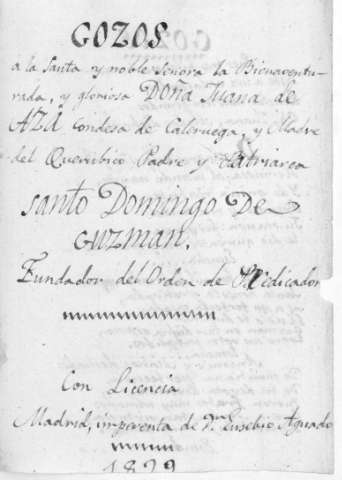 GOZOS
á la Santa y noble Señora la Bienaventu-
rada, y gloriosa DOÑA Juana de
AZA Condesa de Caleruega, y Madre
del Querubico Padre y Patriarca
Santo Domingo De
GUZMAN.
Fundador del Orden de Predicador
Con Licencia
Madrid, imprenta de Dn. Eusebio Aguado
1829